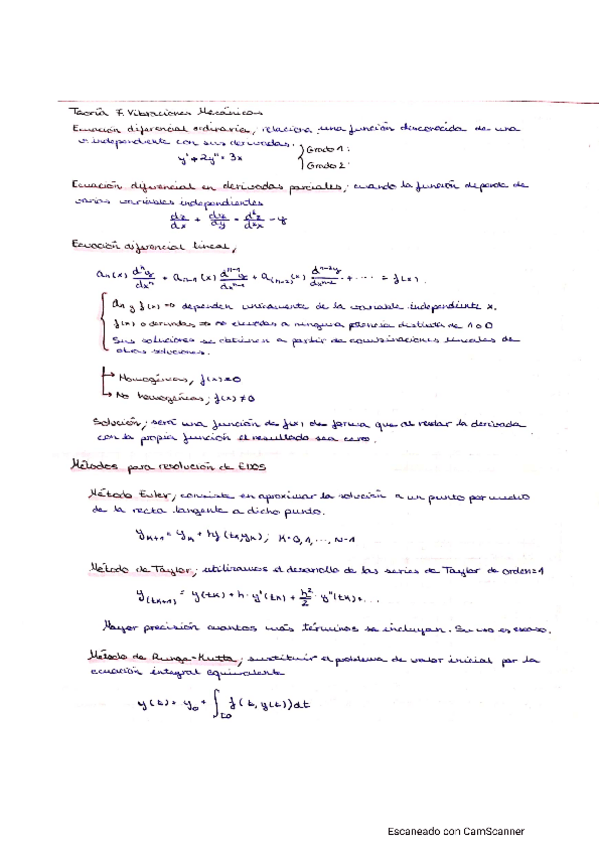 Teoría 7. Vibraciones Mecánicas
Ecuación diferencial ordinaria, relaciona una función desconocida de una
v. independiente con sus derivadas.
y' + 2y'' = 3x
Grado 1:
Grado 2:
Ecuación diferencial en derivadas parciales; cuando la función depende de
varias variables independientes
dz/dx + dz/dy = d²z/d²x - y
Ecuación diferencial lineal,
aₙ(x) dⁿy/dxⁿ + aₙ₋₁(x) dⁿ⁻¹y/dxⁿ⁻¹ + a₍ₙ₋₂₎(x) dⁿ⁻²y/dxⁿ⁻² + ... = f(x).
aₙ y f(x) => dependen unicamente de la variable independiente x.
f(x) o derivadas => no elevadas a ninguna potencia distinta de 1 o 0
Sus soluciones se obtienen a partir de combinaciones lineales de
otras soluciones.
Homogéneas, f(x)=0
No homogéneas; f(x)≠0
Solución; será una función de f(x) de forma que al restar la derivada
con la propia función el resultado sea cero.
Métodos para resolución de EDOS
Método Euler, consiste en aproximar la solución a un punto por medio
de la recta tangente a dicho punto.
yₖ₊₁ = yₖ + hf(tₖ,yₖ); k=0,1,..., N-1
Método de Taylor; utilizamos el desarrollo de las series de Taylor de orden=1
y₍ₜₖ₊₁₎ = y(tₖ) + h·y'(tₖ) + h²/2 · y''(tₖ)+...
Mayor precisión cuantos más términos se incluyan. Su uso es escaso.
Método de Runga-Kutta; sustituir el problema de valor inicial por la
ecuación integral equivalente
y(t) = y₀ + ∫t₀ f(t, y(t))dt
Escaneado con CamScanner